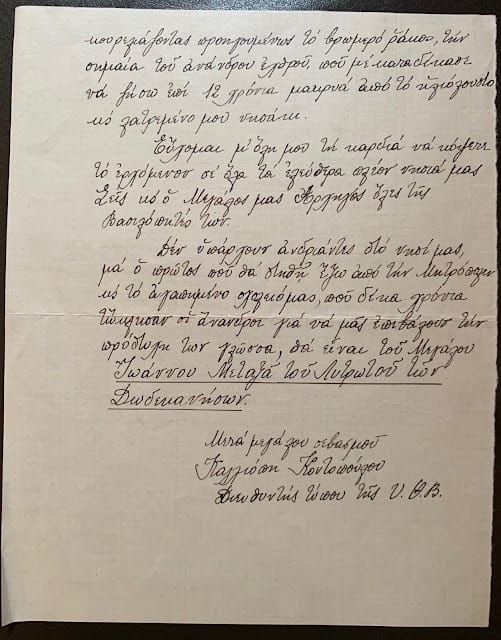 κουρελιάζοντας προηγουμένως τὸ βρωμερὸ ράκος, τὴν
σημαία τοῦ ἀνάνδρου ἐχθροῦ, ποὺ μὲ καταδίκασε
νὰ ζήσω ἐπὶ 12 χρόνια μακρυὰ ἀπὸ τὸ ἡλιόλουστο
κὶ λατρεμένο μου νησάκι.
Εὔχομαι μ' ὅλη μου τὴ καρδιὰ νὰ κόψετε
τὸ ἐρχόμενον σὲ ὅλα τὰ ἐλεύθερα πλέον νησιά μας
Σεῖς κὶ ὁ Μεγάλος μας Ἀρχηγὸς ὅλες τῆς
Βασιλόπητές των.
Δὲν ὑπάρχουν ἀνδριάντες στὸ νησί μας,
μὰ ὁ πρῶτος ποὺ θὰ στηθῆ ἔξω ἀπὸ τὴν Μητρόπολιν
κὶ τὸ ἀγαπημένο σχολεῖο μας, ποὺ δέκα χρόνια
τὤκλεισαν οἱ ἄνανδροι γιὰ νὰ μᾶς ἐπιβάλουν τὴν
πρόστυχη των γλῶσσα, θὰ εἶναι τοῦ Μεγάλου
Ἰωάννου Μεταξᾶ τοῦ Λυτρωτοῦ τῶν
Δωδεκανήσων.
Μετὰ μεγάλου σεβασμοῦ
Καλλιόπη Κοντοπούλου
Διευθυντὴς τύπου τῆς